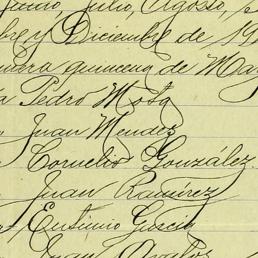 Junio, Julio, Agosto, 
bre y Diciembre de 19
mera quincena de Ma
Pedro Mota
Juan Mendez
Cornelio González.
Juan Ramírez
Eutimio Garcia
Juan